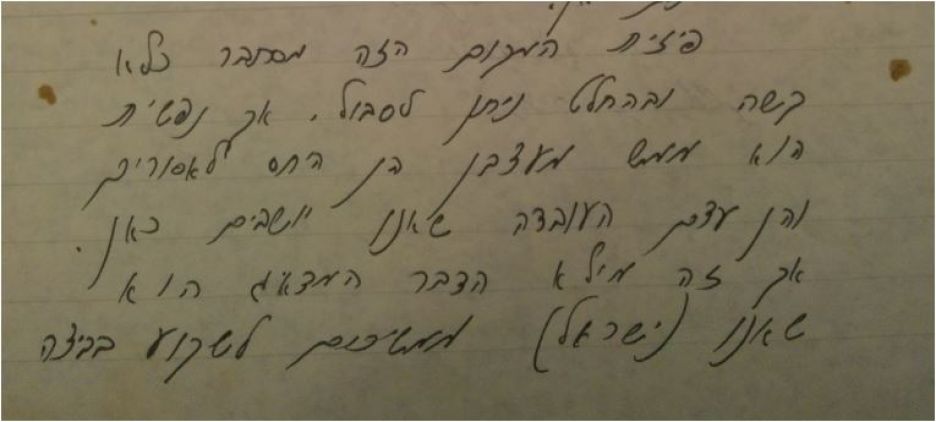 פיזית המקום הזה מסתבר כלא
קשה ובהחלט ניתן לסבול. אך נפשית
הוא ממש מעצבן הן היחס לאסורים
והן עצם העובדה שאנו יושבים כאן.
אך זה מילא הדבר המדאיג הוא
שאנו (ישראל) ממשיכים לשקוע בביצה